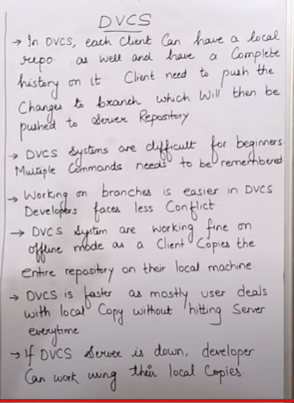 DVCS
→ In DVCS, each client Can have a local
repo as well and have a Complete
history on it Client need to push the
Changes to branch which will then be
pushed to Server Repository
→ DVCS Systems are difficult for beginners
Multiple Commands needs to be remembered
→ Working on branches is easier in DVCS
Developers faces less Conflict.
→ DVCS System are working fine on
offline mode as a Client Copies the
entire repository on their local machine
→ DVCS is faster as mostly user deals
with local Copy without hitting Server
everytime
→ If DVCS Server is down, developer
Can work using their local Copies